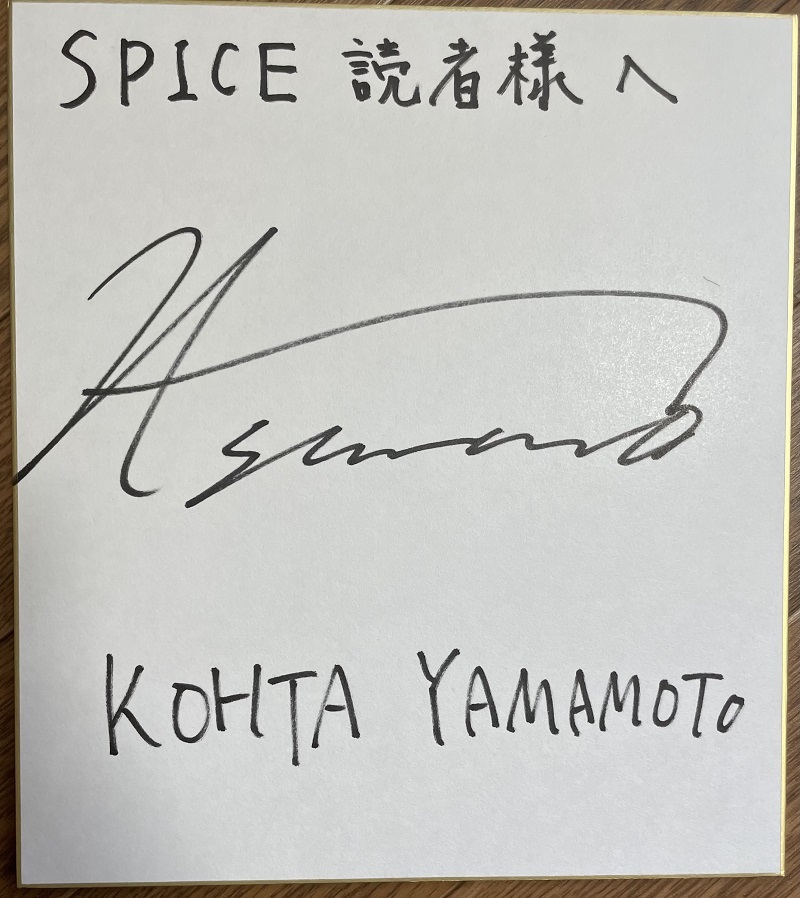 SPICE 読者様へ
KOHTA YAMAMOTO